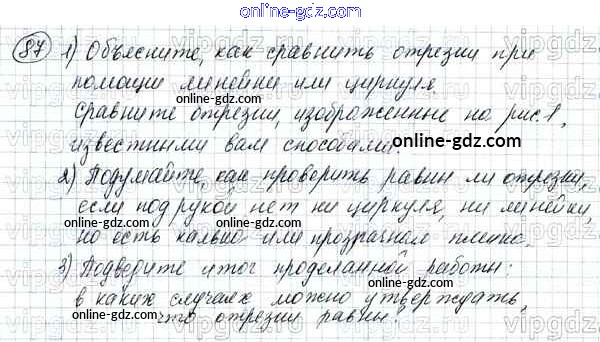 online-gdz.com
87 1) Объясните, как сравнить отрезки при
помощи линейки или циркуля
online-gdz.com
сравните отрезки, изображенные на рис. 1,
online-gdz.com
известными вам способами.
2) Подумайте, как проверить равны ли отрезки,
если под рукой нет ни циркуля, ни линейки,
online-gdz.com
но есть калька или прозрачная пленка.
3) Подведите итог проделанной работы:
в каких случаях можно утверждать,
online-gdz.com
что отрезки равны?